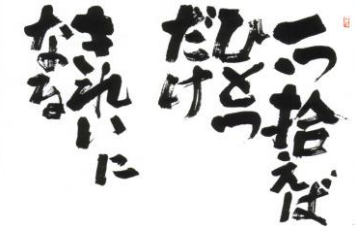 一つ拾えば
ひとつ
だけ
きれいに
なる